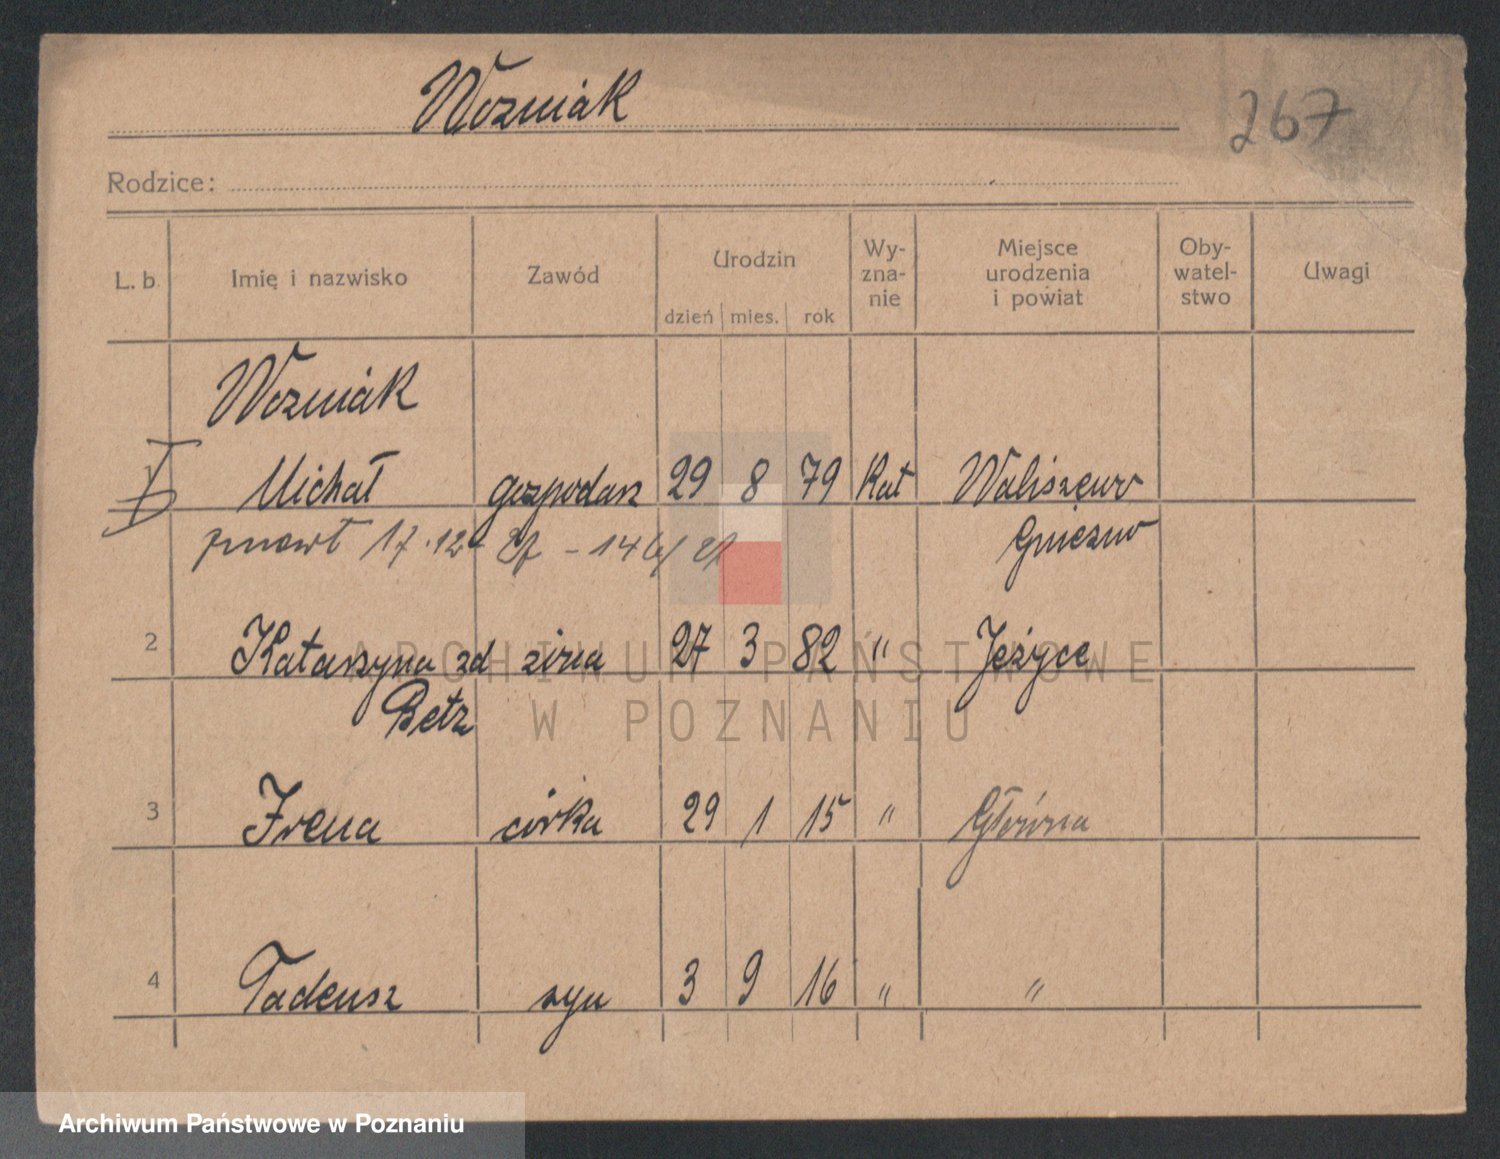 Woźniak
267
Rodzice:
L. b. Imię i nazwisko Zawód Urodzin dzień mies. rok Wy-zna-nie Miejsce urodzenia i powiat Oby-watel-stwo Uwagi
Woźniak
1 Michał gospodarz 29 8 79 Kat Waliszewo
17.12 Gniezno
2 Katarzyna zd żona 27 3 82 " Jeżyce
Betz
3 Irena córka 29 1 15 " Główna
4 Tadeusz syn 3 9 16 " "
ARCHIWUM PAŃSTWOWE
W POZNANIU
Archiwum Państwowe w Poznaniu